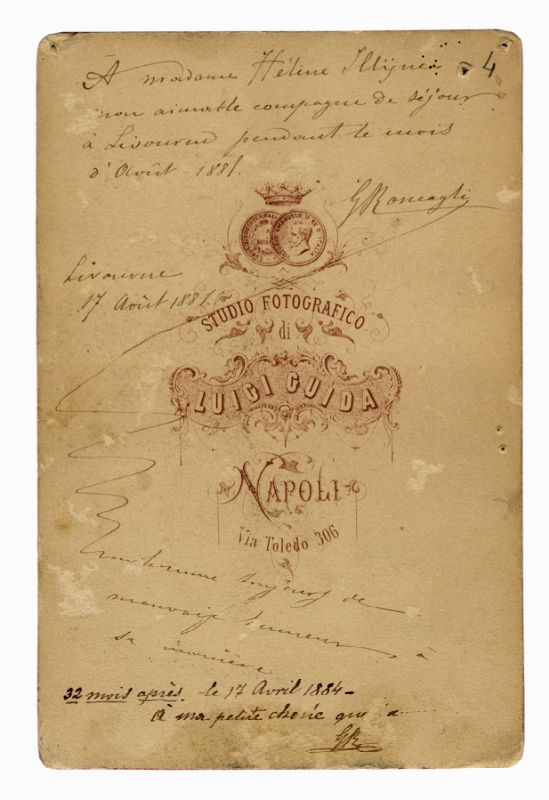 4
À madame Hélène
mon aimable compagne de séjour
à Livourne pendant le mois
d'Août 1881.
GRoncagli
Livourne
17 Août 1881.
STUDIO FOTOGRAFICO
di
LUIGI GUIDA
NAPOLI
Via Toledo 306
toujours de
mauvaise humeur, à
sa manière
32 mois après, le 17 Avril 1884 -
A ma petite cherie
GR